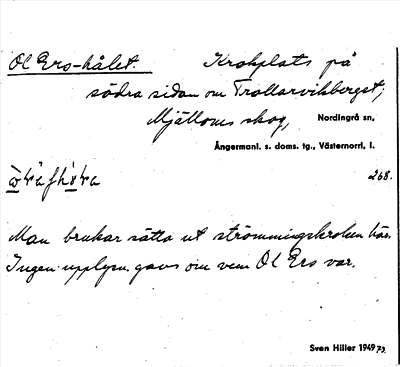 Ol Ers-hålet. Krokplats på
södra sidan om Trollarviksberget,
Mjälloms skog, Nordingrå sn,
Ångermanl. s. doms. tg., Västernorrl. l.
268.
Man brukar sätta ut strömmingskroken här.
Ingen upplysn. gavs om vem Ol Ers var.
Sven Hiller 1949